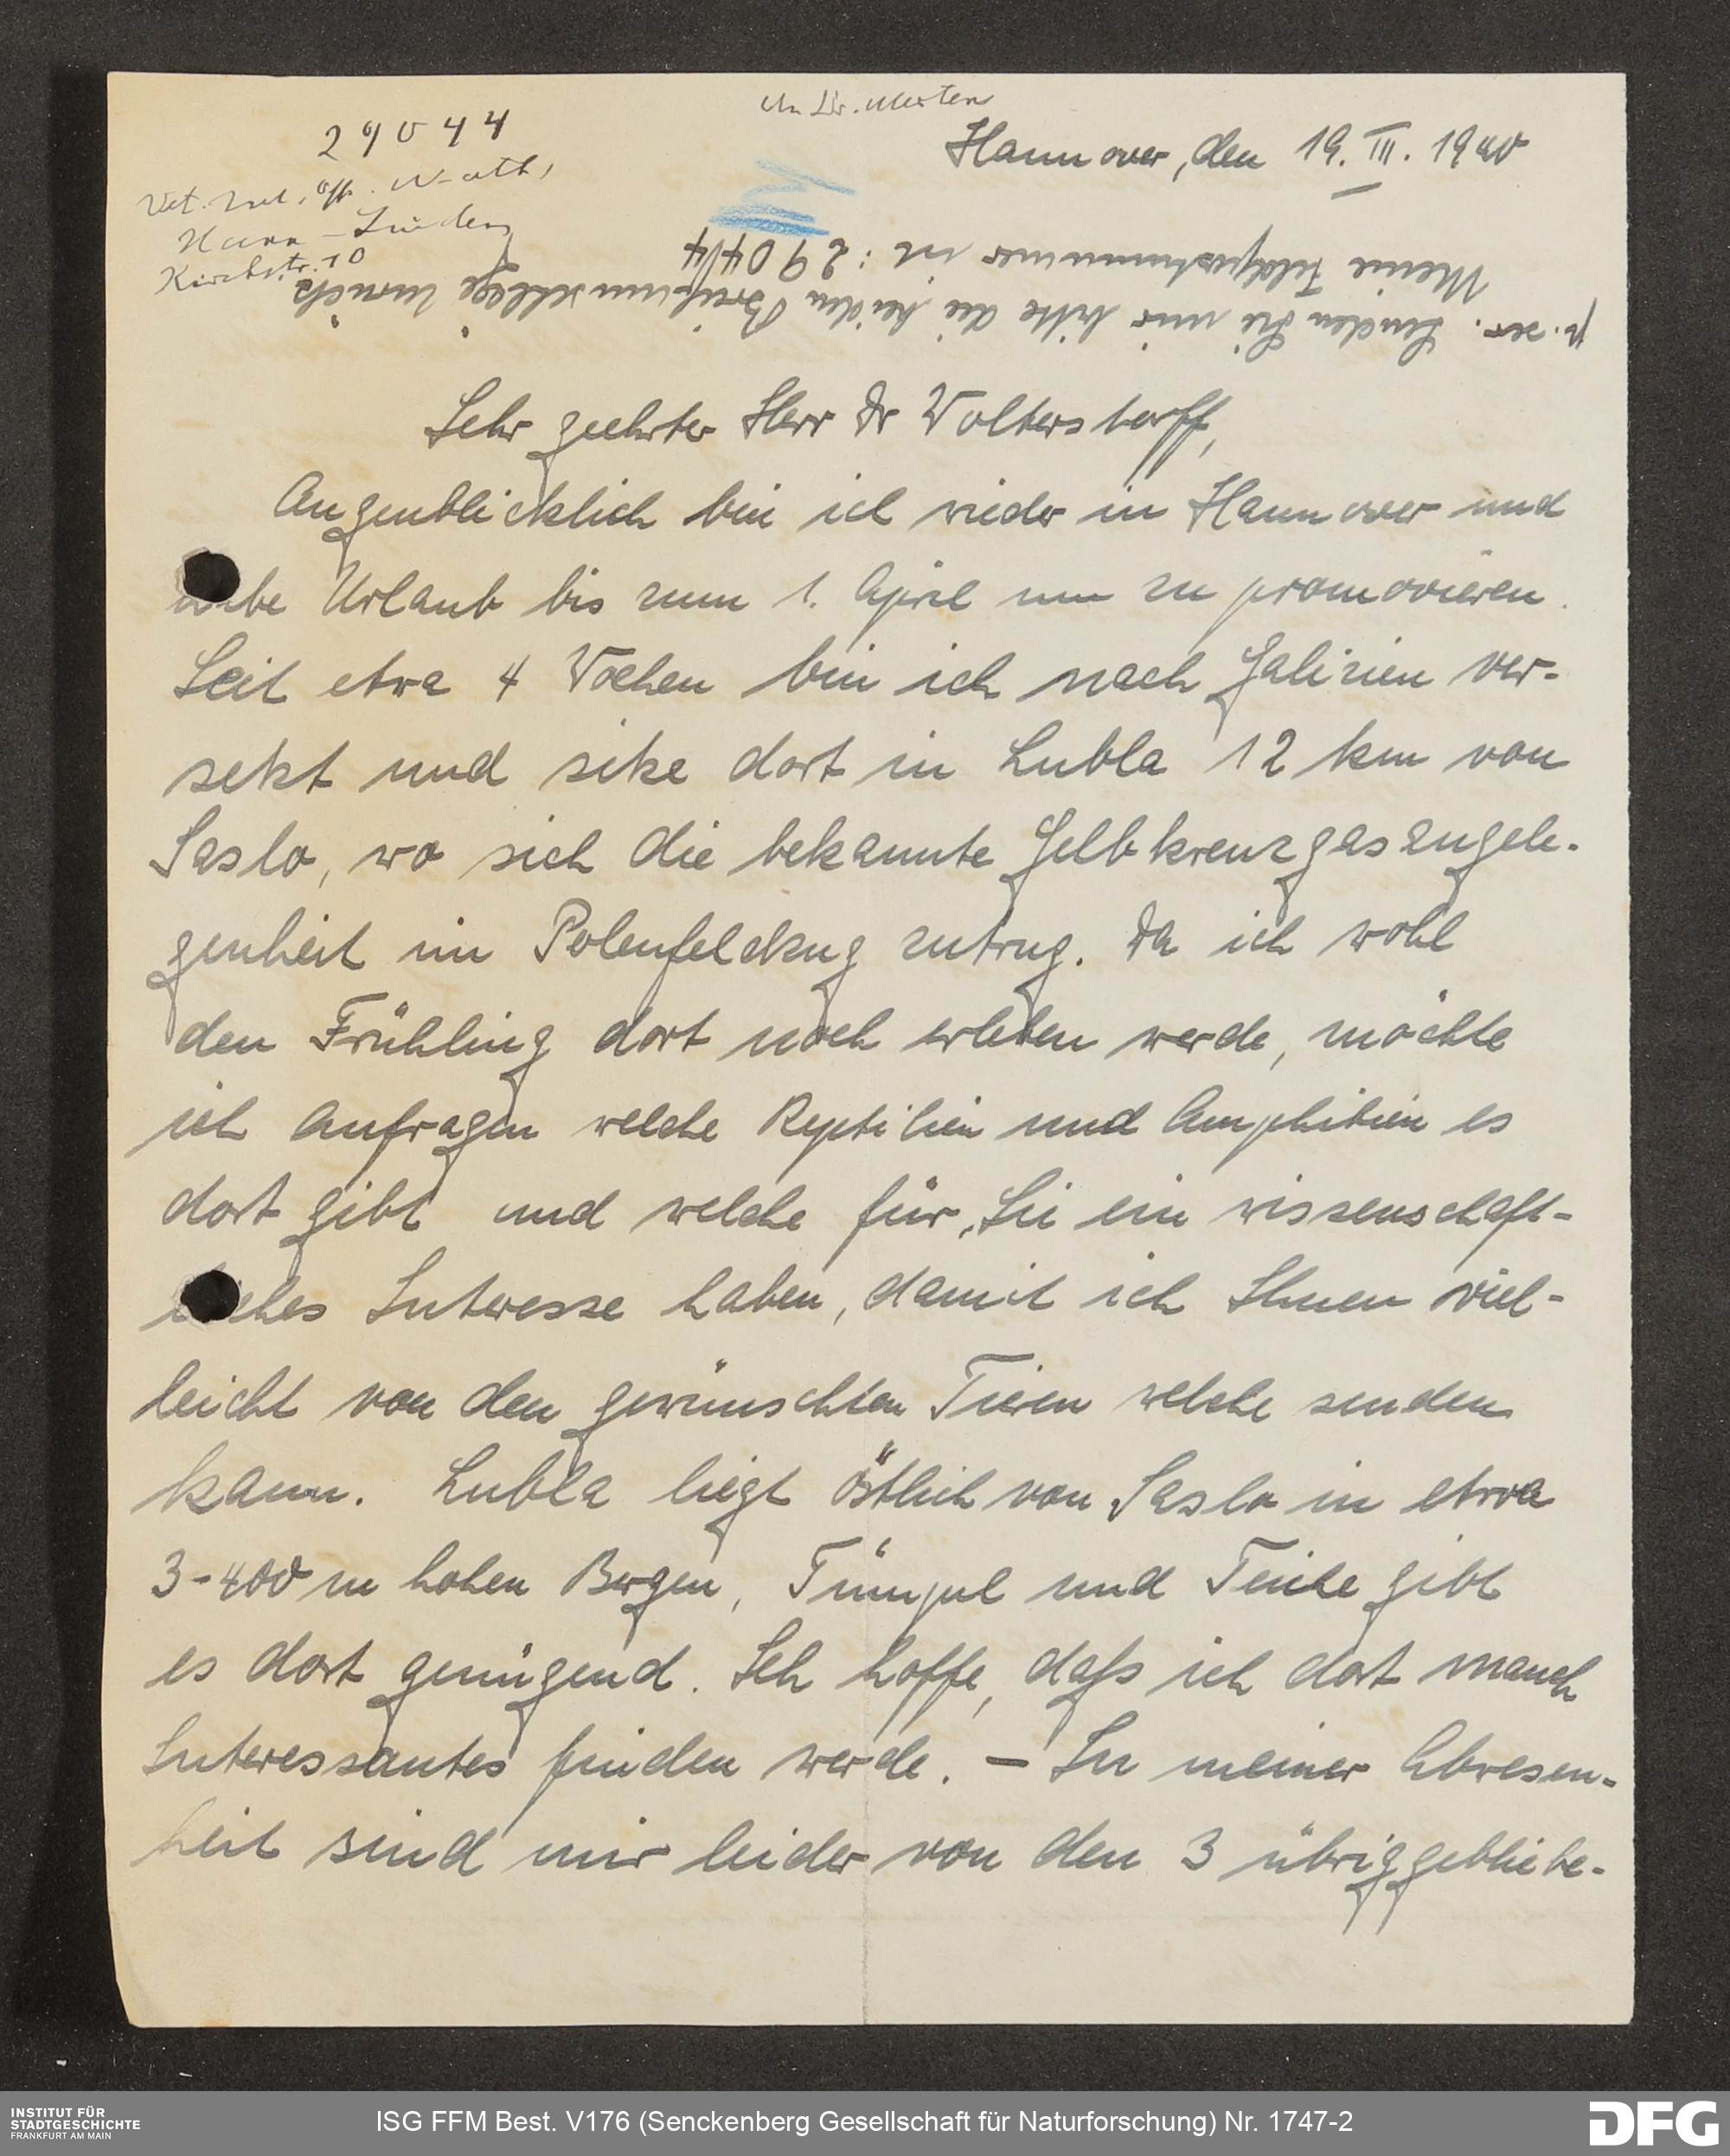 An Dir. Mertens
29044
Hannover, den 19. III. 1940
Hann-Linden
Kirchstr. 10
Meine Feldpostnummer ist: 29044
Senden Sie mir bitte die beiden Briefumschläge zurück
Sehr geehrter Herr Dr Wolterstorff,
Augenblicklich bin ich wieder in Hannover und
habe Urlaub bis zum 1. April um zu promovieren.
Seit etwa 4 Wochen bin ich nach Galizien ver-
setzt und sitze dort in Lubla 12 km von
Jaslo, wo sich die bekannte Gelbkreuzgasangele-
genheit im Polenfeldzug zutrug. Da ich wohl
den Frühling dort noch erleben werde, möchte
ich anfragen welche Reptilien und Amphibien es
dort gibt und welche für Sie ein wissenschaft-
liches Interesse haben, damit ich Ihnen viel-
leicht von den gewünschten Tieren welche senden
kann. Lubla liegt östlich von Jaslo in etwa
3-400 m hohen Bergen, Tümpel und Teiche gibt
es dort genügend. Ich hoffe, daß ich dort manch
Interessantes finden werde. – In meiner Abwesen-
heit sind mir leider von den 3 übriggebliebe-
INSTITUT FÜR
STADTGESCHICHTE
FRANKFURT AM MAIN
ISG FFM Best. V176 (Senckenberg Gesellschaft für Naturforschung) Nr. 1747-2
DFG